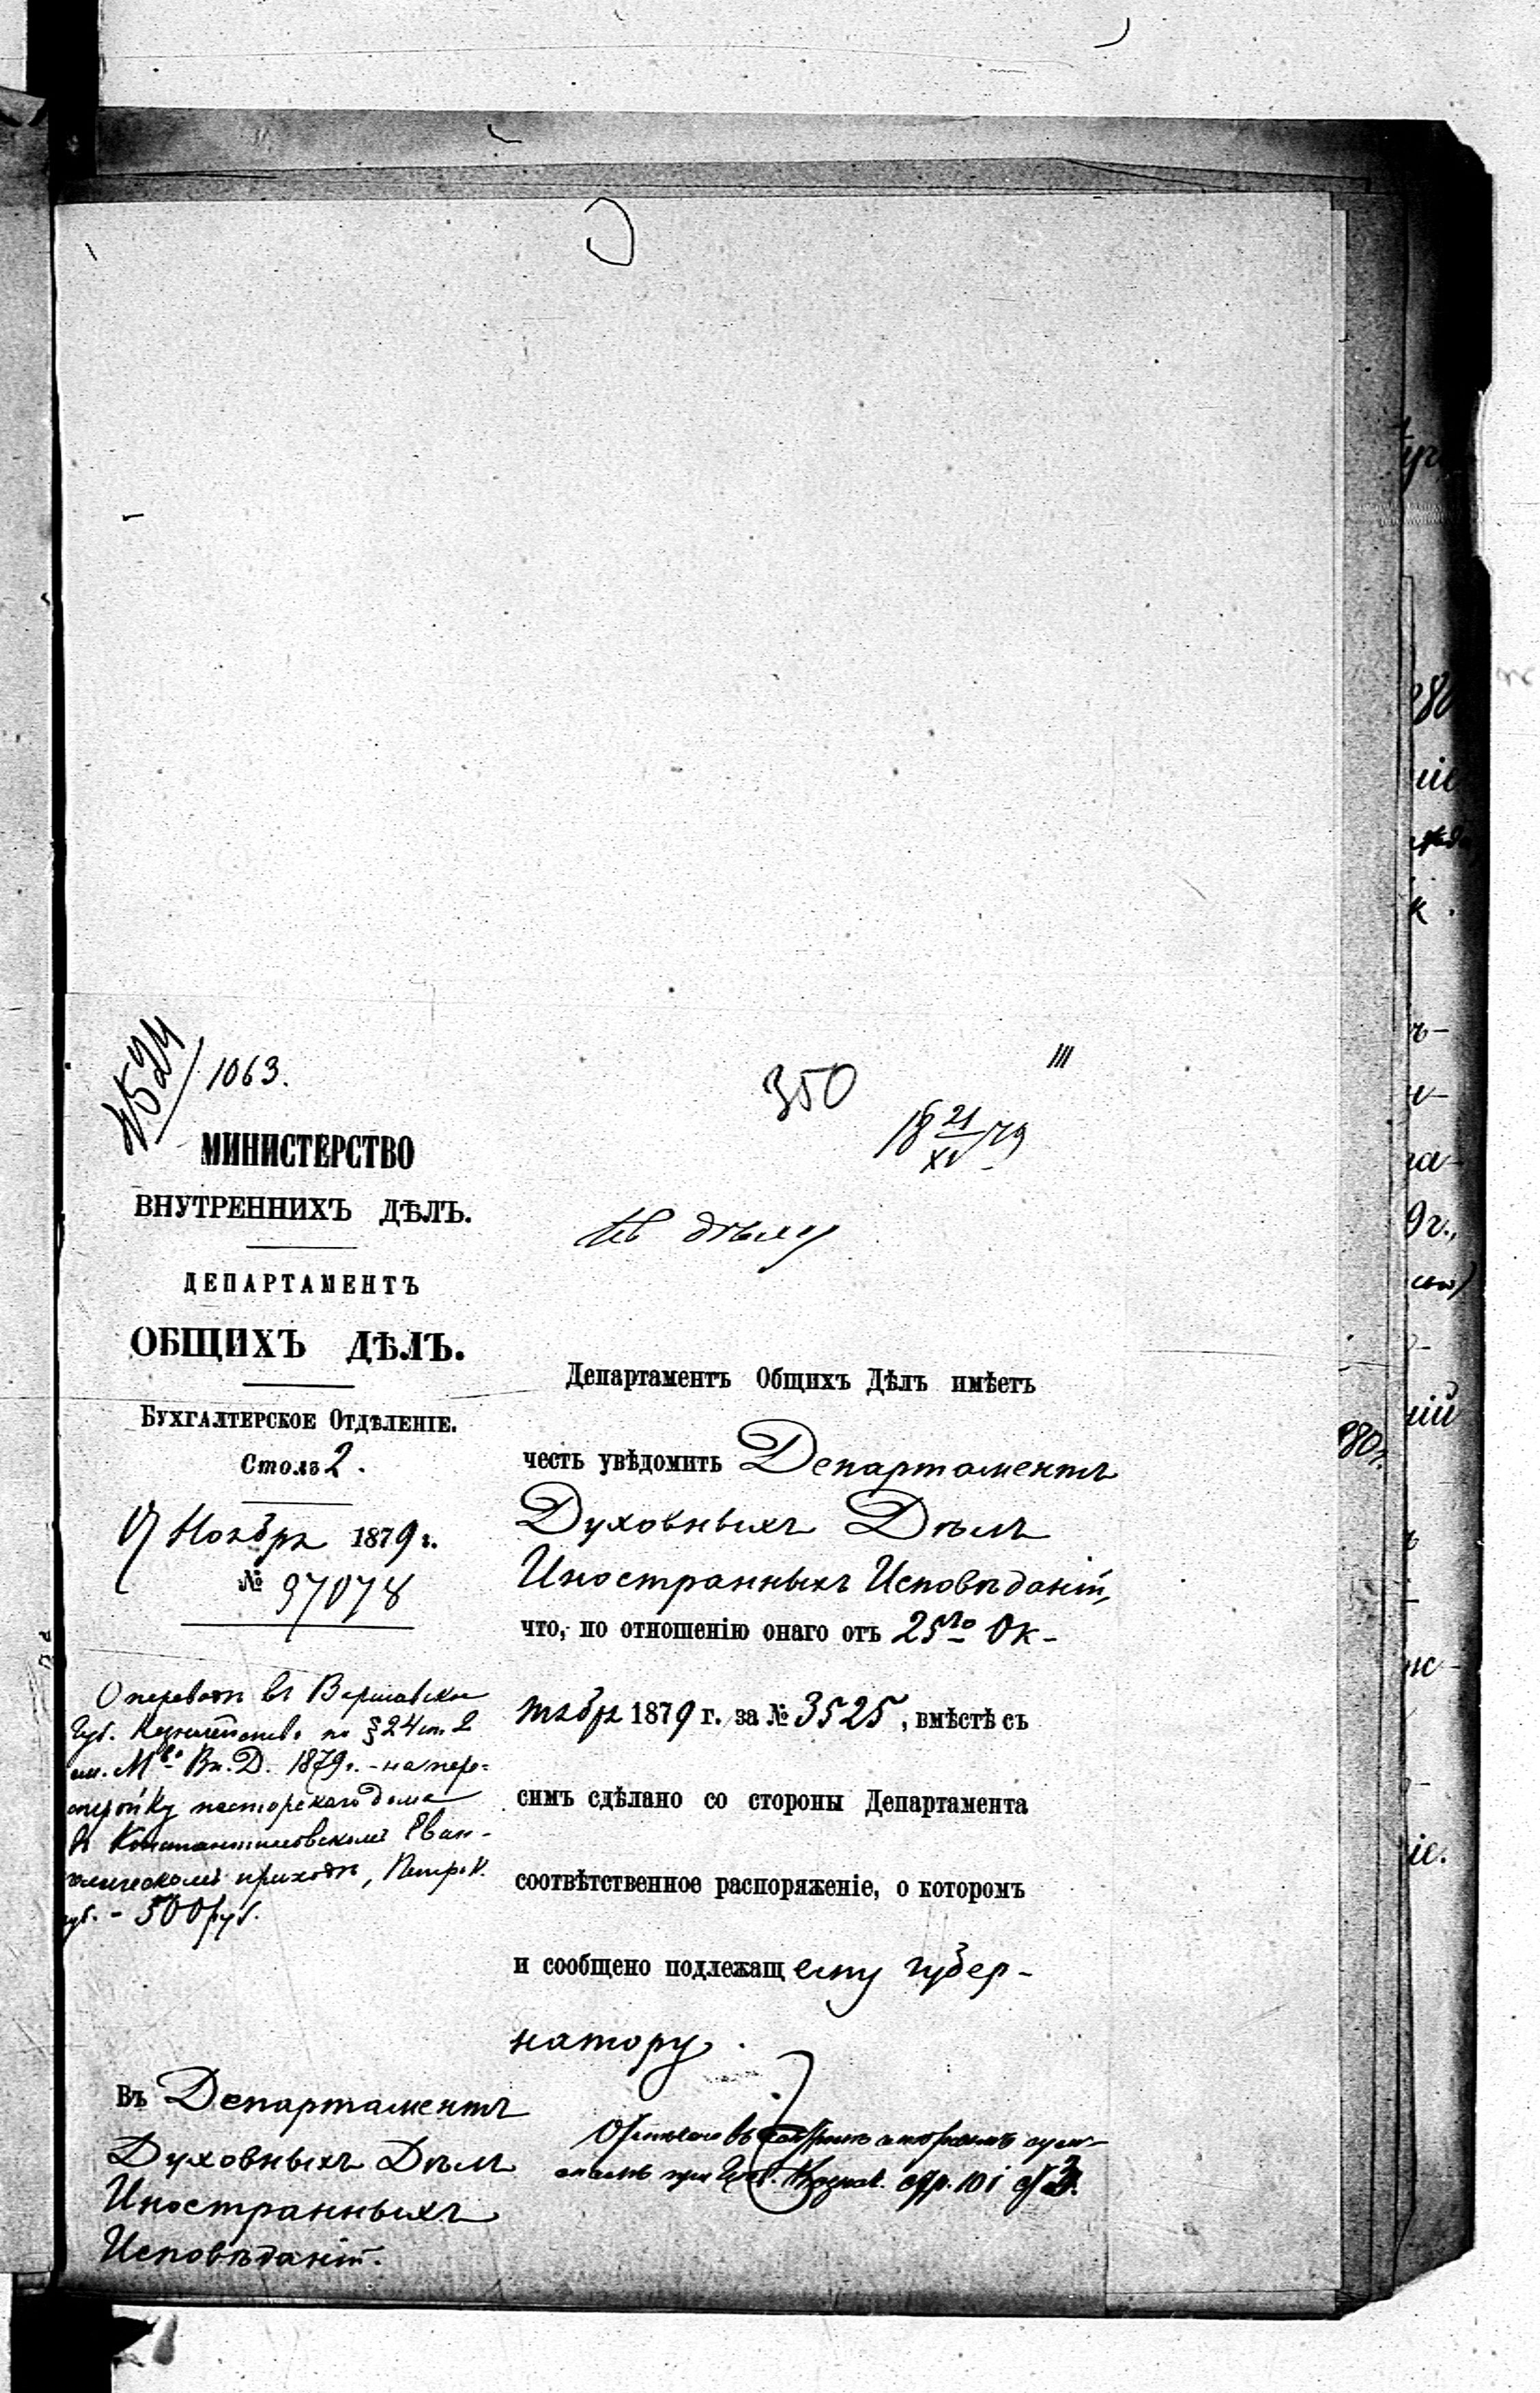 4524/1063.
III
350
18 21/XI 79
МИНИСТЕРСТВО
ВНУТРЕННИХЪ ДѢЛЪ.
Къ дѣлу
ДЕПАРТАМЕНТЪ
ОБЩИХЪ ДѢЛЪ.
БУХГАЛТЕРСКОЕ ОТДѢЛЕНІЕ.
Столъ 2.
Ноября 1879 г.
№ 97078
О переводѣ въ Варшавское
Губ. Казначейство по § 24 ст. 2
см. М-ва Вн. Д. 1879 г. - на пере-
стройку пасторскаго дома
въ Константиновскомъ Еван-
гелическомъ приходѣ, Петрок.
губ. - 500 руб.
Въ Департаментъ
Духовныхъ Дѣлъ
Иностранныхъ
Исповѣданій.
Департаментъ Общихъ Дѣлъ имѣетъ
честь увѣдомить Департаментъ
Духовныхъ Дѣлъ
Иностранныхъ Исповѣданій,
что, по отношенію онаго отъ 25го Ок-
тября 1879 г. за № 3525, вмѣстѣ съ
симъ сдѣлано со стороны Департамента
соотвѣтственное распоряженіе, о которомъ
и сообщено подлежащему губер-
натору.